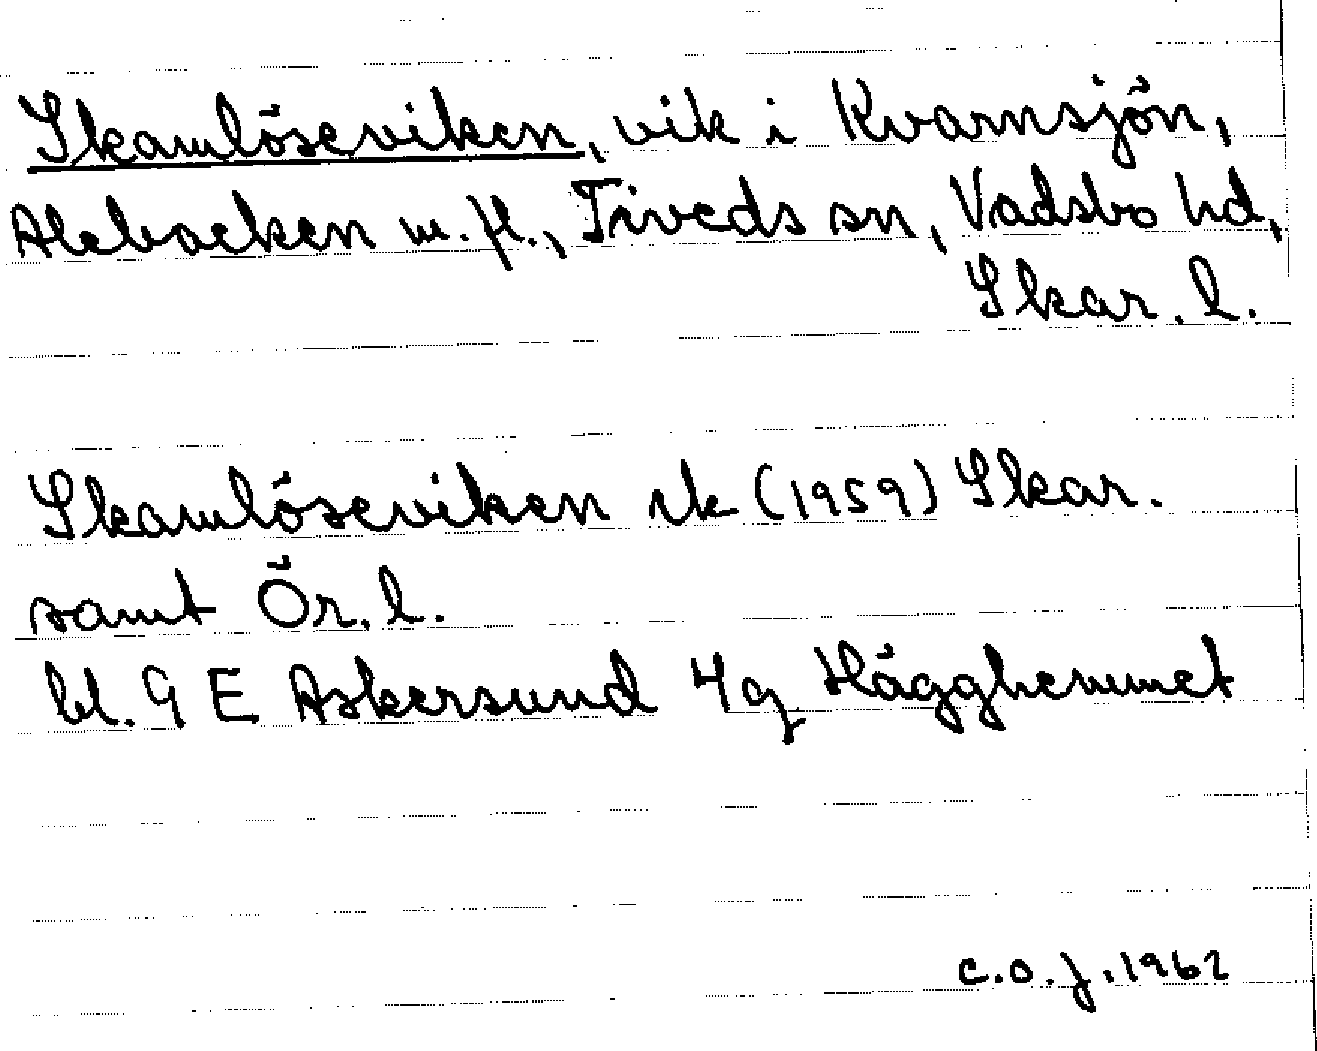 Skamlöseviken, vik i Kvarnsjön,
Alebacken m. fl., Tiveds sn, Vadsbo hd,
Skar. l.
Skamlöseviken rk (1959) Skar.
samt Ör. l.
bl. 9 E Askersund 4g Hägghemmet
C.O.J. 1962